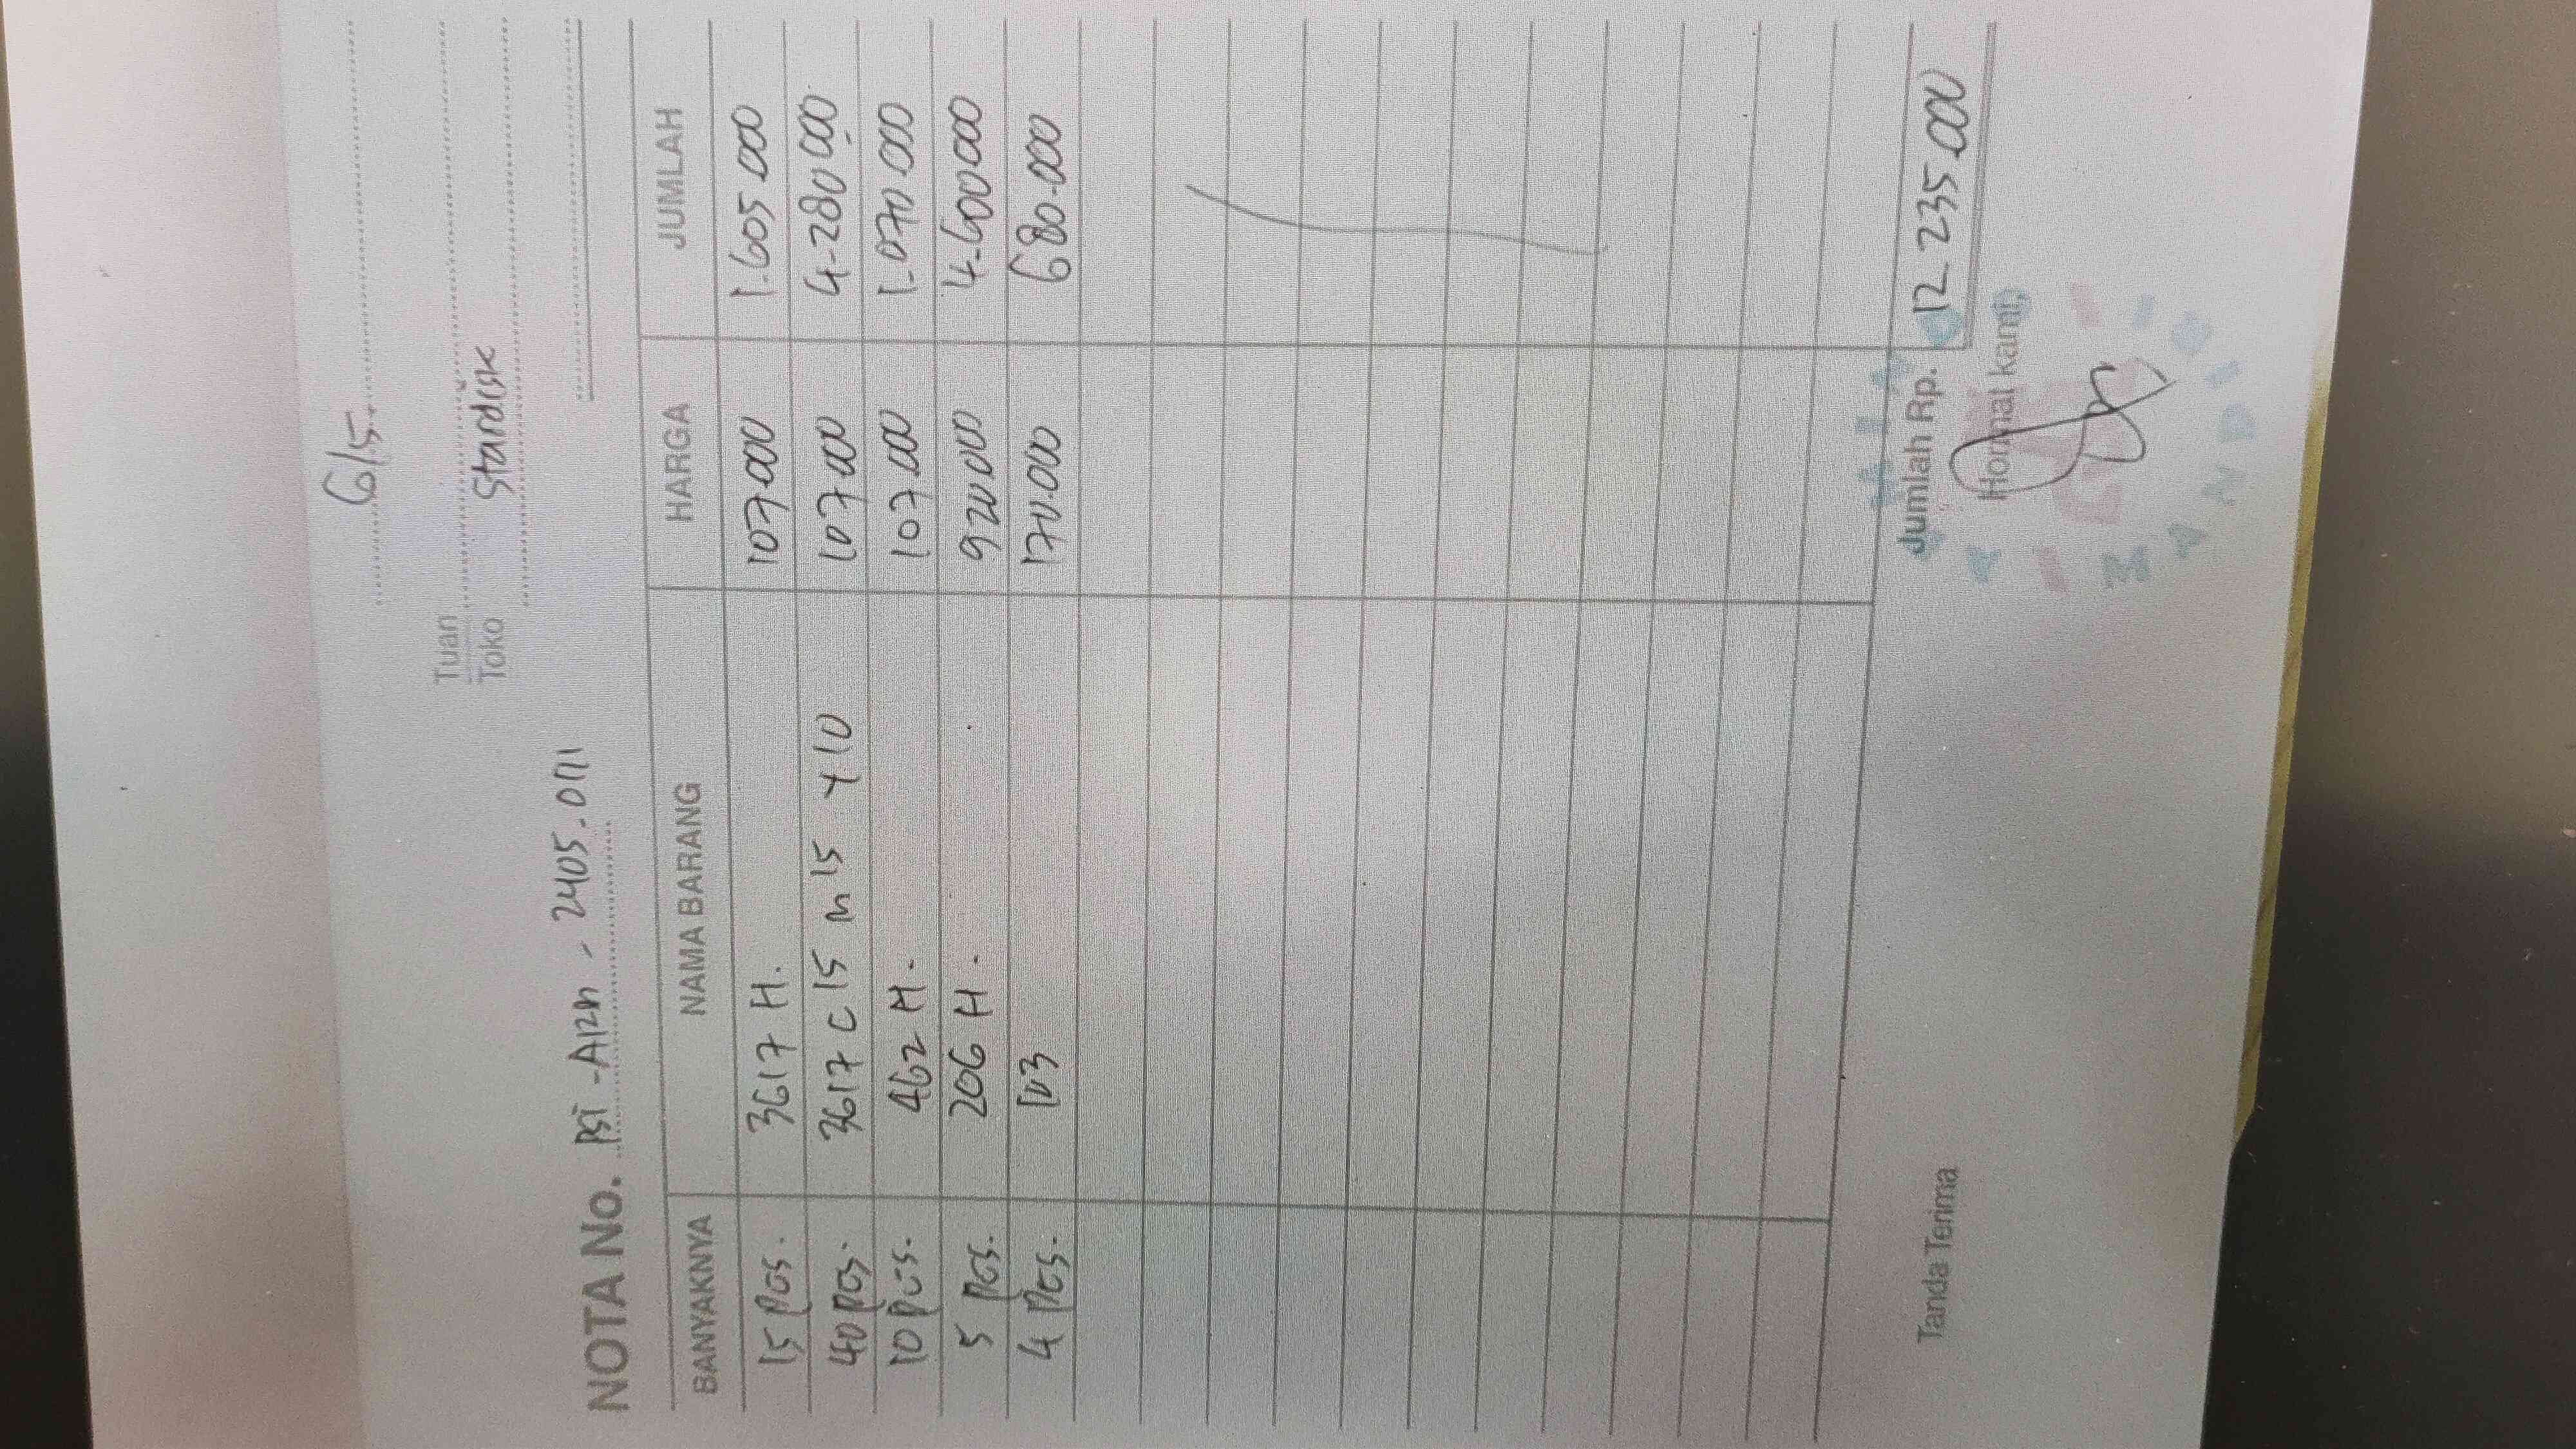 6/5.
Tuan
Toko Standisk
NOTA No. PSI-AIZN-2405-0111
BANYAKNYA NAMA BARANG HARGA JUMLAH
15 pcs. 3617 H. 107.000 1.605.000
40 pcs. 3617 C 15 M 15 Y 10 107.000 4.280.000
10 pcs. 462 H. 107.000 1.070.000
5 pcs. 206 H. 920.000 4.600.000
4 pcs. 103 170.000 680.000
Jumlah Rp. 12.235.000
Tanda Terima Hormat kami,